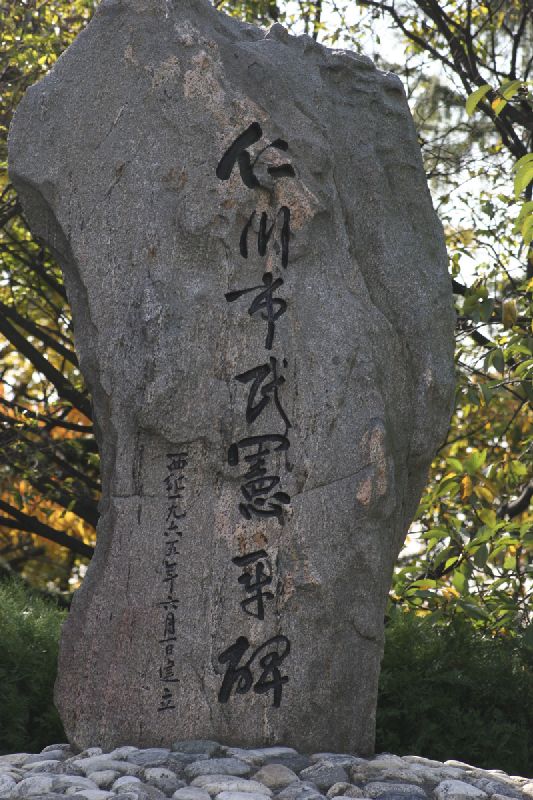 仁川市民憲章碑
西紀一九六五年六月一日建立